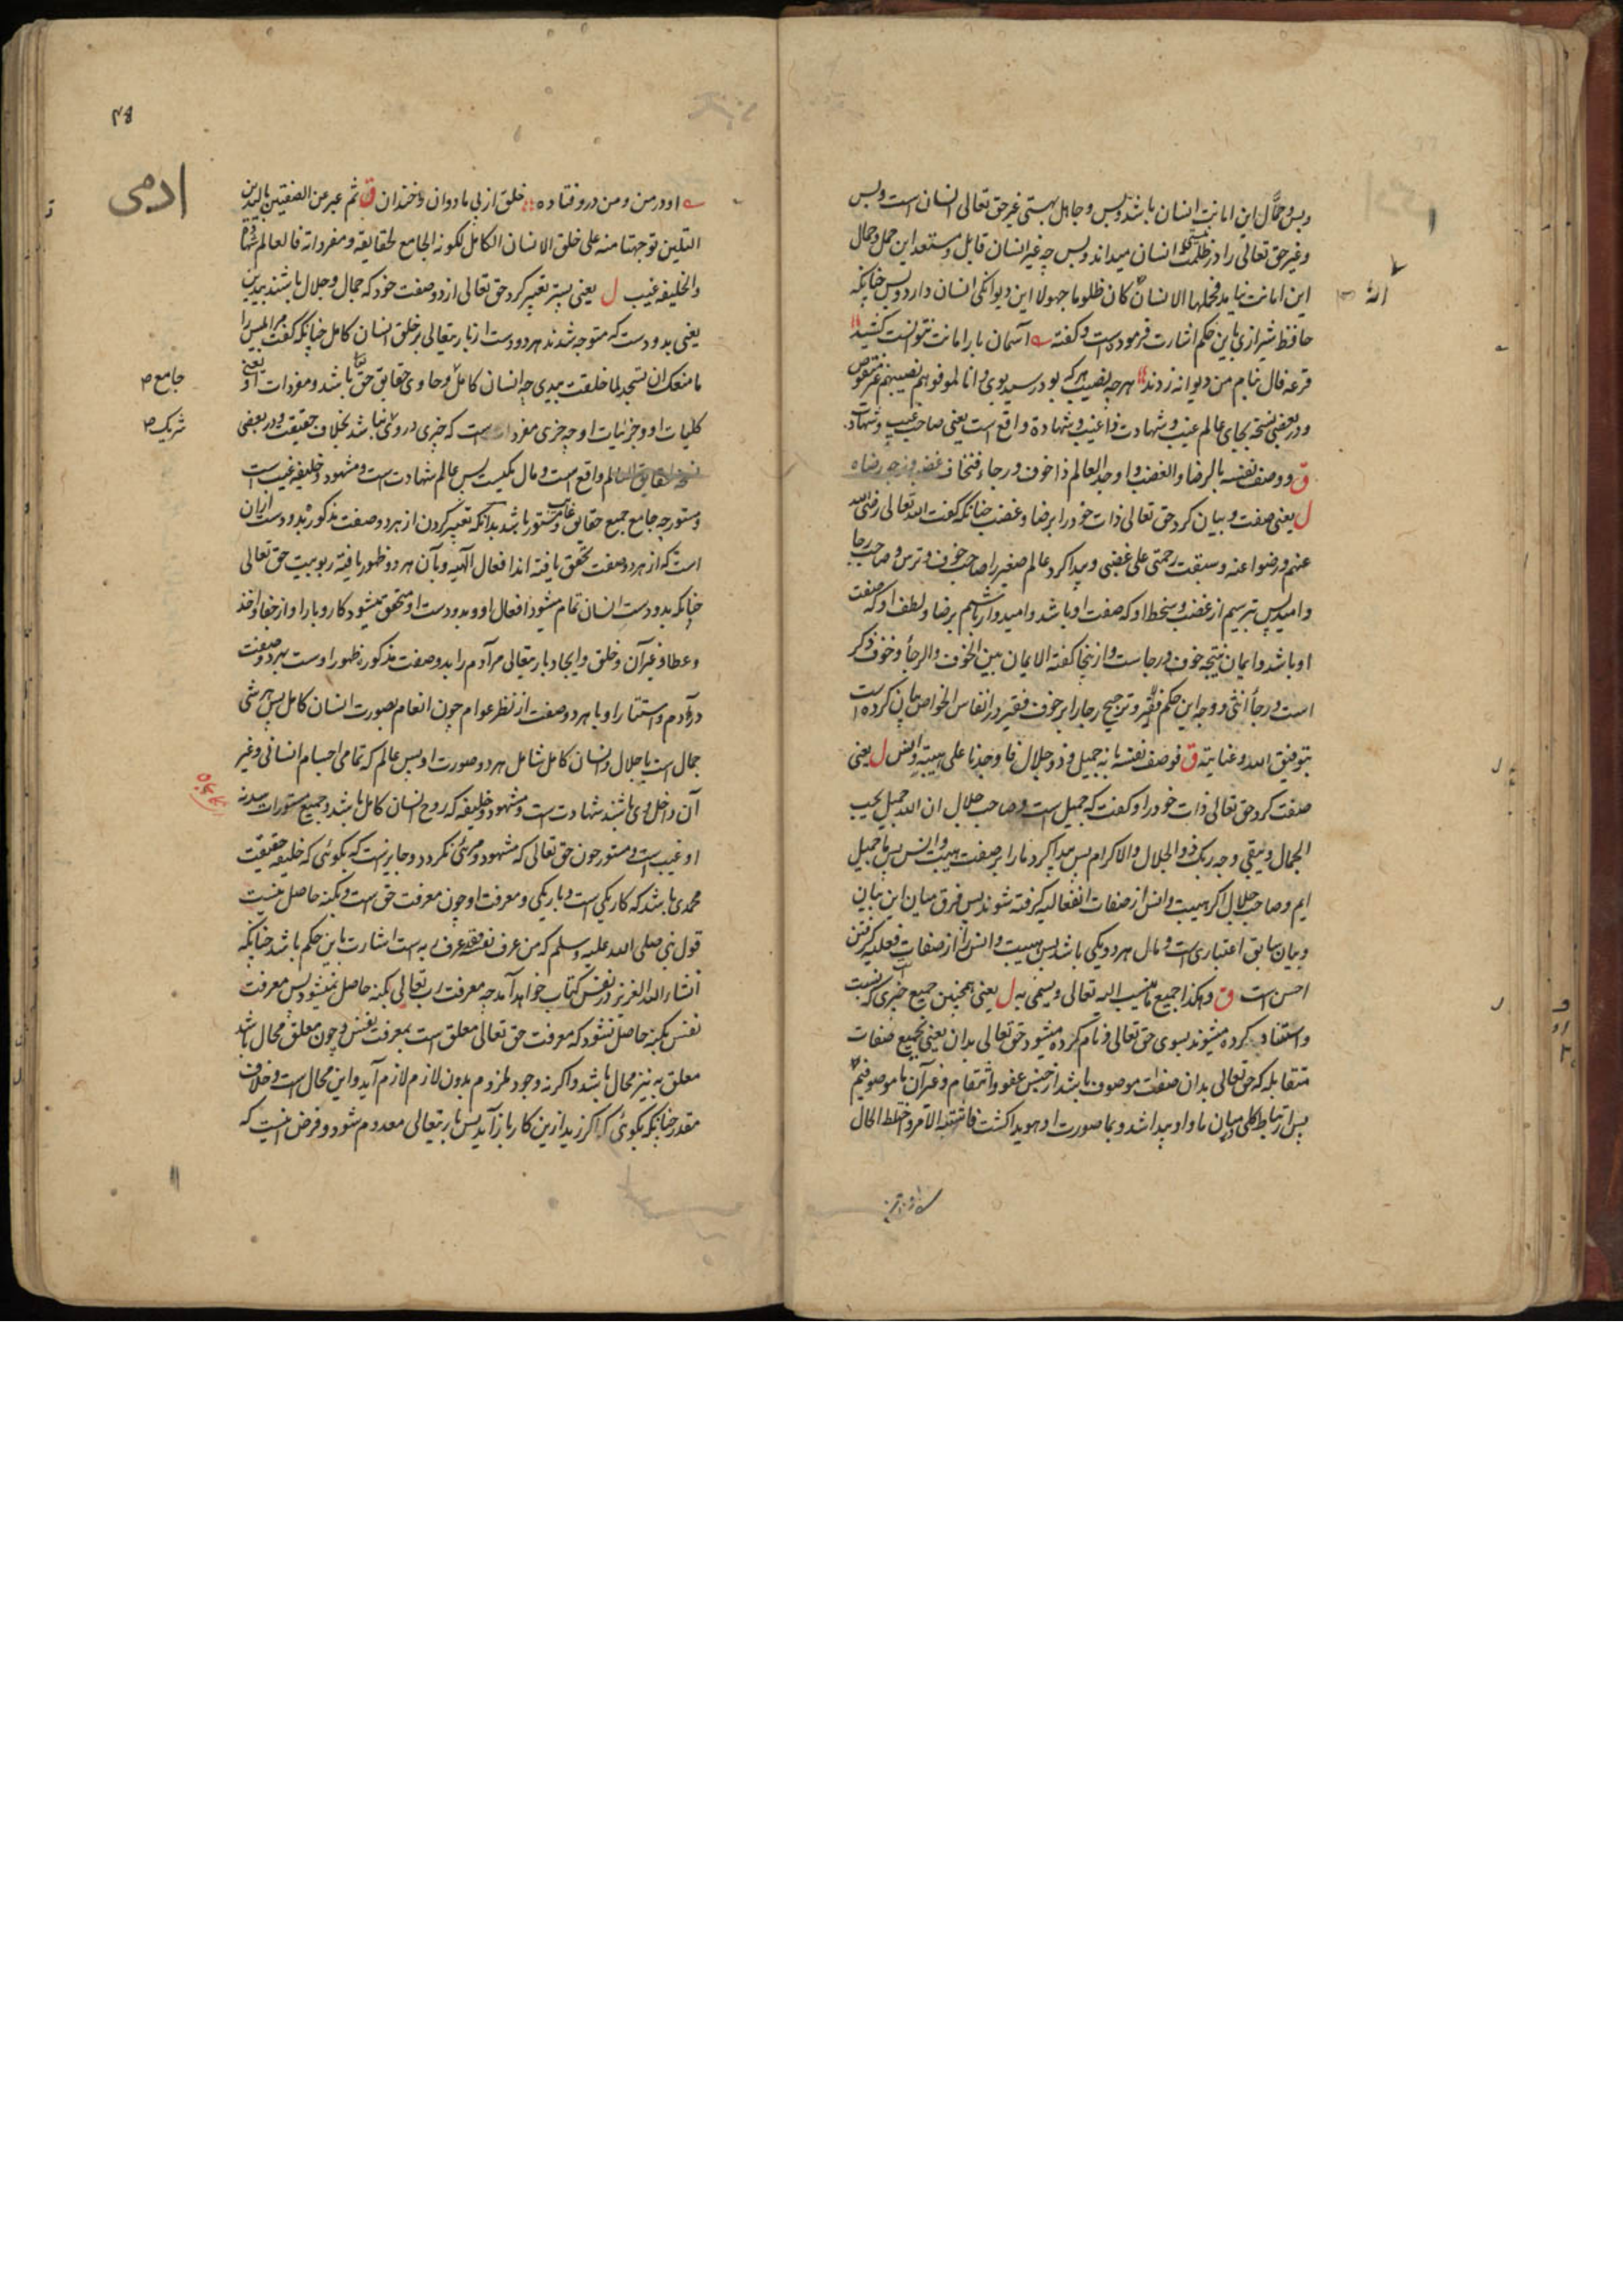 وبس و حمّال این امانت انسان باشد و بس و جاهل بهستی غیر حق تعالی انسان است و بس
وغیر حق تعالی را در ظلمت انسان میداند و بس چه غیر انسان قابل و مستعد این حمل و حمال
این امانت نیامد فحملها الانسان کان ظلوما جهولا این دیوانگی انسان دارد و بس چنانکه
حافظ شیرازی باین حکم اشارت فرموده است و گفته آسمان بار امانت نتوانست کشید
قرعه فال بنام من دیوانه زدند هرچه نصیب هرکه بود رسید بوی وانا لموفوهم نصیبهم غیر منقوص
ودر بعضی نسخه بجای عالم غیب و شهادت ذا غیب و شهادة واقع است یعنی صاحب غیب و شهادت
ق ووصف نفسه بالرضا والغضب واوجد العالم ذا خوف ورجاء فتخاف غضبه وترجو رضاه
ل یعنی صفت و بیان کرد حق تعالی ذات خود را برضا و غضب چنانکه گفت الله تعالی رضی الله
عنهم ورضوا عنه وسبقت رحمتی علی غضبی و پیدا کرد عالم صغیر را صاحب خوف و ترس و صاحب رجا
وامید پس ترسیم از غضب و سخط او که صفت او باشد و امیدوار باشیم برضا و لطف او که صفت
او باشد وایمان نتیجه خوف و رجاست و ازینجا گفته الایمان بین الخوف والرجاء و خوف ذکر
است و رجا انثی و وجه این حکم فقیر و ترجیح رجا را بر خوف فقیر در انفاس الخواص بیان کرده است
بتوفیق الله وعنایته ق فوصف نفسه بانه جمیل وذو جلال فاوجدنا علی هیبة وانس ل یعنی
صفت کرد حق تعالی ذات خود را و گفت که جمیل است و صاحب جلال ان الله جمیل یحب
الجمال ویبقی وجه ربک ذو الجلال والاکرام پس پیدا کرد ما را بر صفت هیبت و انس پس ما جمیل
ایم و صاحب جلال اگر هیبت و انس از صفات انفعالیه گرفته شوند پس فرق میان این بیان
وبیان سابق اعتباری است و مآل هر دو یکی باشد پس هیبت و انس را از صفات فعلیه گرفتن
احسن است ق وهکذا جمیع ما ینسب الیه تعالی ویسمی به ل یعنی همچنین جمیع چیزی که نسبت
واستناد کرده میشوند بسوی حق تعالی و نام کرده میشود حق تعالی بدان یعنی بجمیع صفات
متقابله که حق تعالی بدان صفات موصوف باشد از جنس عفو و انتقام و غیر آن ما موصوفیم
پس ارتباط کلی میان ما و او پیدا شد و بما صورت او هویدا گشت فاشتبه الامر واختلط الحال
۴۸
ادمی
او در من و من درو فتاده خلق از پی ما دوان و خندان ق ثم عبر عن الصفتین بالیدین
التلین توجهتا منه علی خلق الانسان الکامل لکونه الجامع لحقایقه ومفرداته فالعالم شهادة
والخلیفه غیب ل یعنی پستر تعبیر کرد حق تعالی از دو صفت خود که جمال و جلال باشند بیدین
یعنی بدو دست که متوجه شدند هر دو دست از باریتعالی بر خلق انسان کامل چنانکه گفت مر ابلیس را
ما منعک ان تسجد لما خلقت بیدی چه انسان کامل و حاوی حقایق حق باشد و مفردات او یعنی
جامع ص
کلیات او و جزئیات او چه چیزی مفردات است که چیزی درو نباشد بخلاف حقیقت و در بعضی
شریک ص
نسخه لحقایق العالم واقع است و مآل یکیست پس عالم شهادت است و مشهود و خلیفه غیب است
ومستور چه جامع جمیع حقایق غایب و مستور باشد بدانکه تعبیر کردن از هر دو صفت مذکوره بدو دست ازان
است که از هر دو صفت تحقق یافته اند افعال الهیه و بآن هر دو ظهور یافته ربوبیت حق تعالی
چنانکه بدو دست انسان تمام میشود افعال او و بدو دست او متحقق میشود کار و بار او از جفا و اخذ
وعطا و غیر آن و خلق و ایجاد باریتعالی مر آدم را بدو صفت مذکوره ظهور اوست بهر دو صفت
در آدم و استتار او با هر دو صفت از نظر عوام چون انعام بصورت انسان کامل پس هر شی
جمال است یا جلال و انسان کامل شامل هر دو صورت او پس عالم که تمامی اجسام انسانی و غیر
آن داخل وی باشند شهادت است و مشهود و خلیفه که روح انسان کامل باشد و جمیع مستورات
او غیب است و مستور چون حق تعالی که مشهود و مرئی نگردد و جایز نیست که بگوئی که خلیفه حقیقت
محمدی باشد که کار یکی است و باریکی و معرفت او چون معرفت حق است و بکنه حاصل نیست
قول نبی صلی الله علیه وسلم که من عرف نفسه فقد عرف ربه است اشارت باین حکم باشد چنانکه
انشاء الله العزیز در نفس کتاب خواهد آمد چه معرفت رب تعالی بکنه حاصل نمیشود پس معرفت
نفس بکنه حاصل نشود که معرفت حق تعالی معلق است بمعرفت نفس و چون معلق محال باشد
معلق به نیز محال باشد و اگر نه وجود ملزوم بدون لازم لازم آید و این محال است و خلاف
مقدر چنانکه بگوئی که اگر زید ازین کار باز آید پس باریتعالی معدوم شود و فرض اینست که